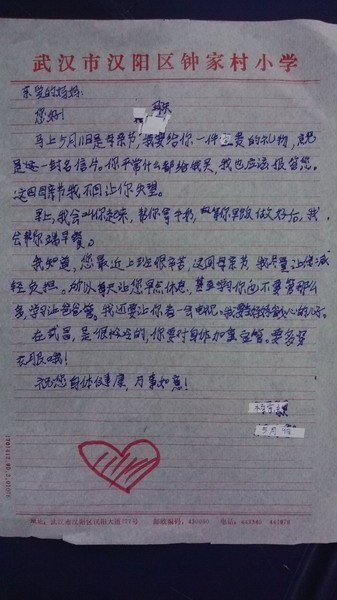 武汉市汉阳区钟家村小学
亲爱的妈妈:
您好!
马上5月11日是母亲节,我要给你一件宝贵的礼物,就
是这一封名信片。你平常什么都给我买,我也应该报答您。
这回母亲节我不会让你失望。
早上,我会叫你起床,帮你等你早饭做好后,我
会帮你端早餐。
我知道,您最近上班很辛苦,这回母亲节,我尽量让你减
轻负担。所以每天让您早点休息,甚至学习你也不要管那么
多,学习让爸爸管。我还要让你看一会电视。我要好好的
在武昌,是很冷的,你要对身体加重宝管。要多穿
衣服哦!
祝您身体健康,万事如意!
5月
地址:武汉市汉阳区汉阳大道 邮政编码:430050 电话: